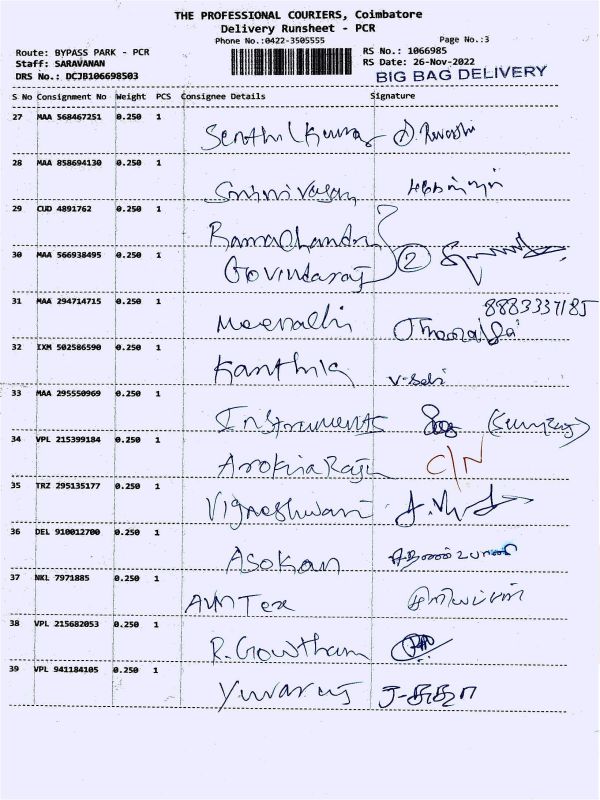 THE PROFESSIONAL COURIERS, Coimbatore
Delivery Runsheet - PCR
Phone No.:0422-3505555
Page No.:3
Route: BYPASS PARK - PCR
RS No.: 1066985
Staff: SARAVANAN
RS Date: 26-Nov-2022
DRS No.: DCJB106698503
BIG BAG DELIVERY
S No Consignment No Weight PCS Consignee Details Signature
27 MAA 568467251 0.250 1
Senthil Kumar
28 MAA 858694130 0.250 1
Srinivasan
29 CUD 4891762 0.250 1
Ramachandra
30 MAA 566938495 0.250 1
Govindaraj 2
31 MAA 294714715 0.250 1
8883337185
Meenathi
32 IXM 502586590 0.250 1
Kanthia V-Selvi
33 MAA 295550969 0.250 1
Instruments
34 VPL 215399184 0.250 1
Arokia Raju C/N
35 TRZ 295135177 0.250 1
Vigneshwari
36 DEL 910012700 0.250 1
Asokan
37 NKL 7971885 0.250 1
AVM Tex
38 VPL 215682053 0.250 1
R. Gowtham
39 VPL 941184105 0.250 1
Yuvaraj